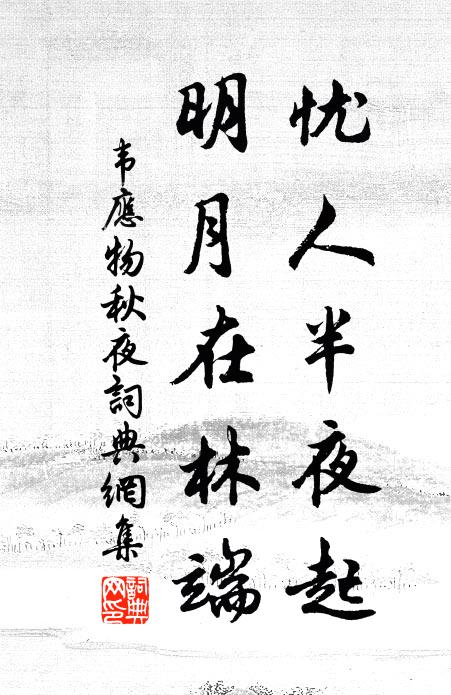 忧人半夜起
明月在林端
韦應物秋夜詞典網集
詞典
网印